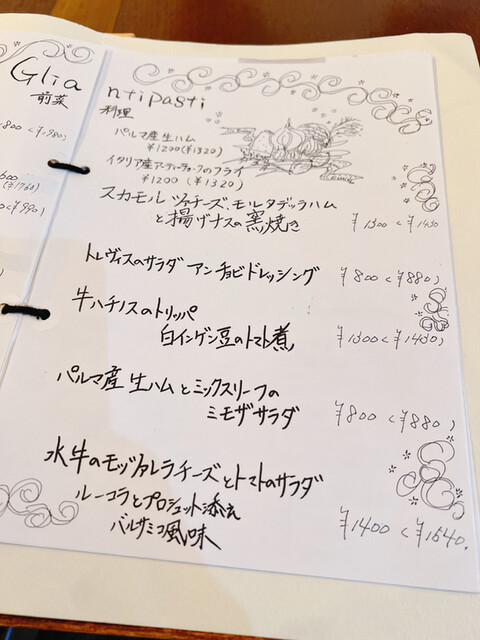 Glia
前菜
800 <¥1980)
(¥1760)
<¥990)
ntipasti
料理
パルマ産生ハム
¥1200(¥1320)
イタリア産アーティーチョークのフライ
¥1200 (¥1320)
スカモルツァチーズ、モルタデッラハム
と揚げナスの窯焼き ¥1300 <¥1430
トレヴィスのサラダ アンチョビドレッシング ¥800 <¥880)
牛ハチノスのトリッパ
白インゲン豆のトマト煮 ¥1300 <¥1430)
パルマ産生ハムとミックスリーフの
ミモザサラダ ¥800 <¥880)
水牛のモッツァレラチーズとトマトのサラダ
ルーコラとプロシュット添え
バルサミコ風味 ¥1400 <¥1540)